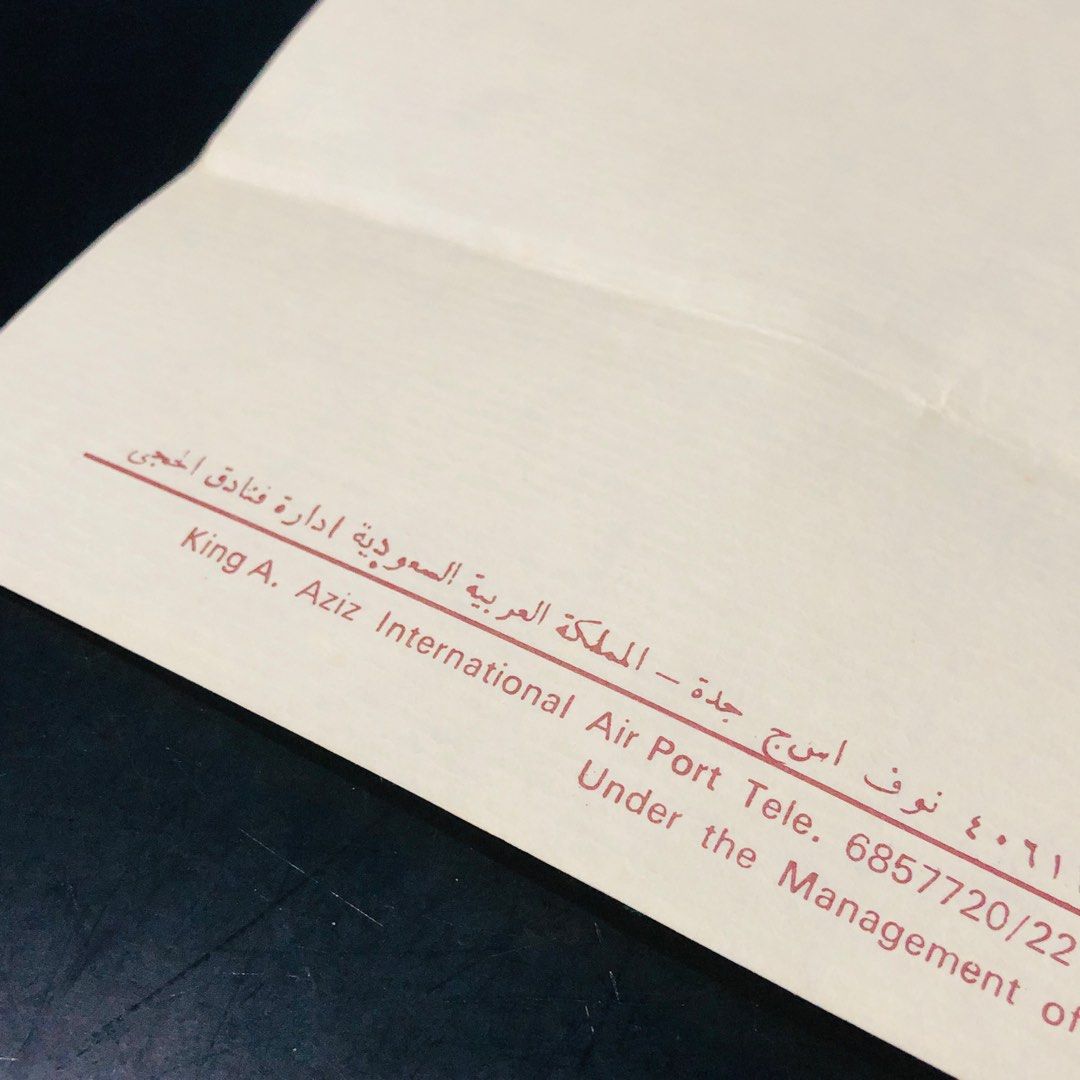 ٤٠٦١ نوف اس ج جدة - المملكة العربية السعودية ادارة فنادق الحجى
King A. Aziz International Air Port Tele. 6857720/22
Under the Management of